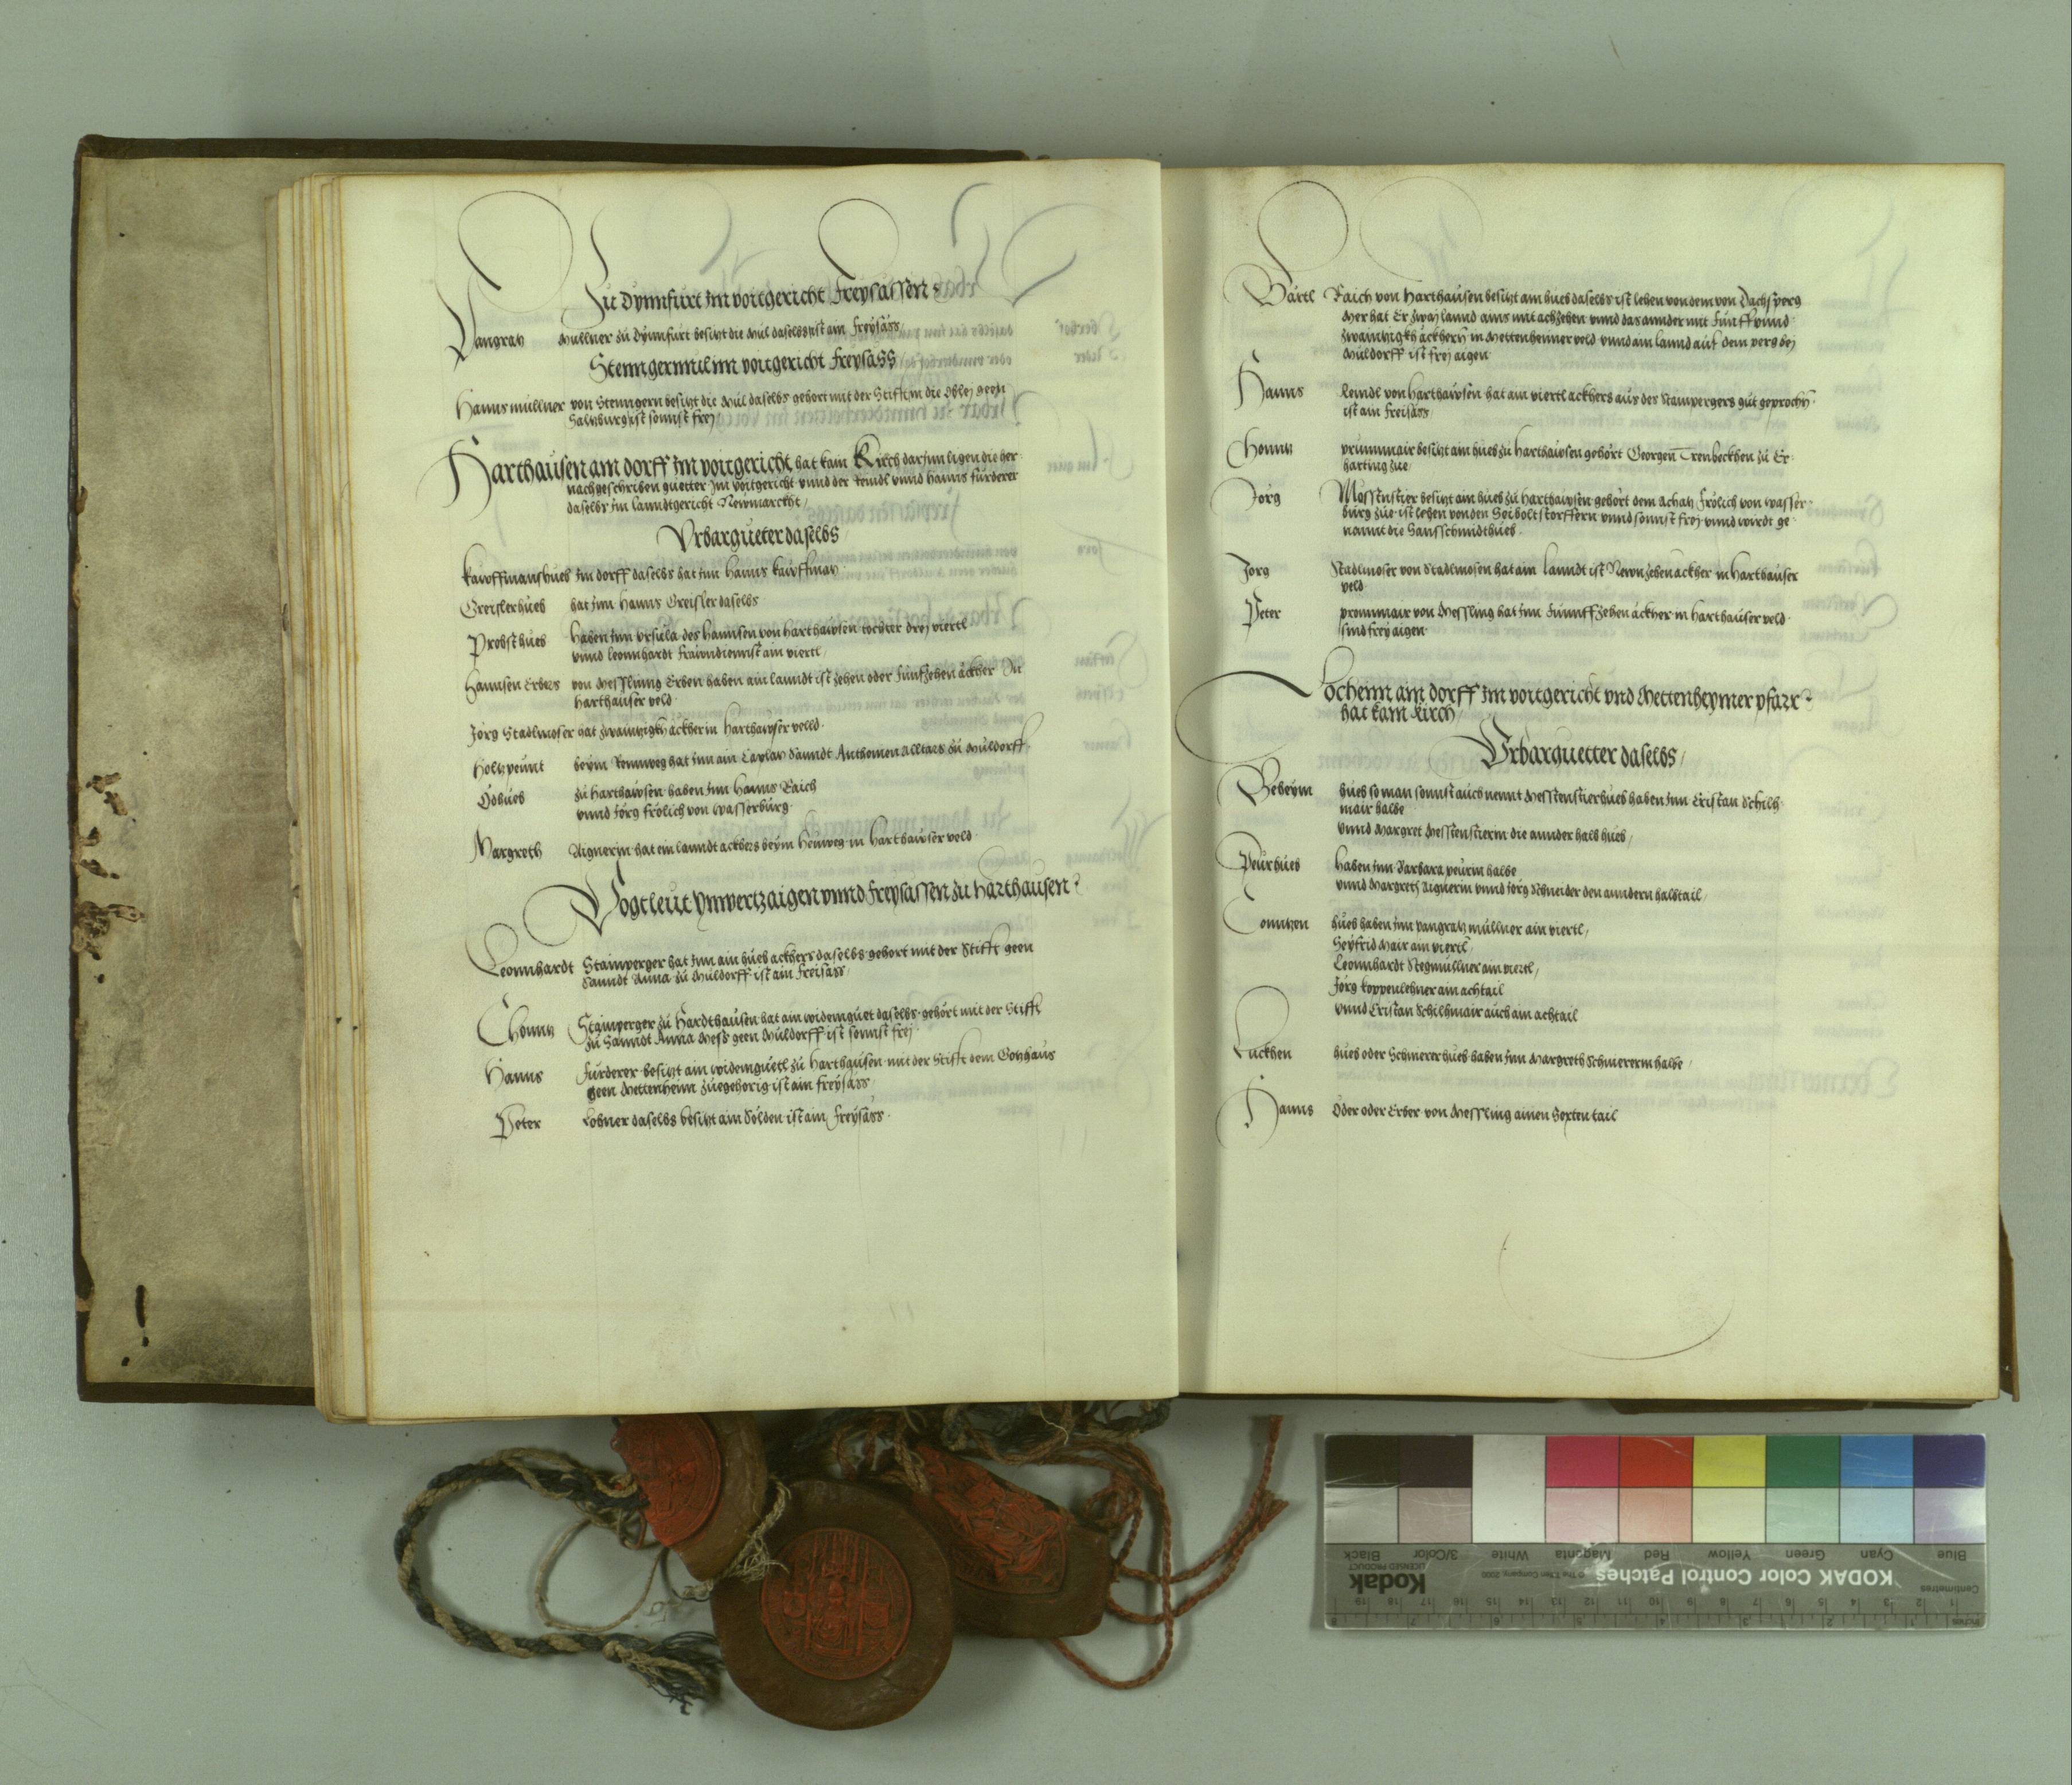 Zu Dynnfurt im voitgericht Freysassen
Pangratz Müllner zu Dynnfurt besitzt die Mül daselbs ist ain Freysäss
Stenngermül im voitgericht Freysass
Hanns müllner von Stenngern besitzt die Mül daselbs gehort mit der Stifft in die Obley geen
Saltzburg ist sonnst frey
Harthausen am dorff im voitgericht hat kain Kirch darinn ligen die her
nachgeschriben guetter Im voitgericht vnnd der Reindl vnnd Hanns Fürderer
daselbs im lanndtgericht Newmarckht
Vrbargueter daselbs
Kawffmanshueb im dorff daselbs hat inn Hanns Kawffman
Greislerhueb hat inn Hanns Greisler daselbs
Probsthueb haben inn Vrsula des Hannsen von Harthawsen tochter drey viertl
vnnd Leonnhardt Frawndiennst ain viertl
Hannsen Erbers von Messling Erben haben ain lanndt ist zehen oder Fünfzehen äckher In
harthauser veld
Jörg Stadlmoser hat zwaintzigkh äckher in Harthawser velld
Holtzpeunt beym Rennweg hat inn ain Caplan Sanndt Anthonien alltars zu Müldorff
Ödhueb zu Harthawsen haben inn Hanns Raich
vnnd Jörg Frölich von Wasserburg
Margreth Aignerin hat ein lanndt ackhers beym Heuweg in Harthawser veld
Vogtleut Ynwertzaigen vnnd Freysassen zu Harthausen
Leonnhardt Stainperger hat inn ain hueb ackhers daselbs gehort mit der Stifft geen
Sanndt Anna zu Müldorff ist ain Freisäss
Chontz Stainperger zu Hardthausen hat ain widemguet daselbs gehört mit der Stifft
zu Sanndt Anna Mess geen Müldorff ist sonnst frey
Hanns Fürderer besitzt ain widemguetl zu Harthausen mit der Stifft dem Gotzhaus
geen Mettenheim zuegehorig ist ain freysäss
Peter Lohner daselbs besitzt ain Sölden ist ain Freysäss
Bärtl Raich von Harthausen besitzt ain hueb daselbs ist lehen von dem von Dachsperg
Mer hat Er zway lannd ains mit achzehen vnnd das annder mit Fünff vnnd
zwaintzigkh äckhern in Mettenheimer veld vnnd ain lannd auf dem perg bey
Müldorff ist frey aigen
Hanns Reindl von Harthawsen hat ain viertl ackhers aus des Stainpergers gut geprochen
ist ain Freisäss
Chontz prunnmair besitzt ain hueb zu Harthawsen gehört Georgen Trenbeckhen zu Er
harting zue
Jörg Mossenstier besitzt ain hueb zu Harthawsen gehört dem Achatz Frölich von Wasser
burg zue ist lehen von den Seiboltstorffern vnnd sonnst frey vnnd wirdt ge
nannt die Sansschmidthueb
Jörg Stadlmoser von Stadlmosen hat ain lanndt ist Newnzehen äckher in Harthauser
veld
Peter prennmair von Messling hat inn Fünnffzehen äckher in Harthauser veld
sind frey aigen
Locheim am dorff im voitgericht vnd Mettenheymer pfarr
hat kain Kirch
Vrbarguetter daselbs
Beheym hueb so man sonnst auch nennt Messenstierhueb haben inn Cristan Schilh
mair halbe
vnnd Margret Messenstierin die annder halb hueb
Peurhueb haben inn Barbara peurin halbe
vnnd Margreth Aignerin vnnd Jörg Schneider den anndern halbtail
Conntzen hueb haben inn Pangratz müllner ain viertl
Seyfrid Mair ain viertl
Leonnhardt Stegmüllner ain viertl
Jörg Koppenlehner ain achtail
vnnd Cristan Schilhmair auch ain achtail
Luckhen hueb oder Schmererhueb haben inn Margreth Schmererin halbe
Hanns Öder oder Erber von Messling ainen Sexten tail
KODAK Color Control Patches
Kodak
LICENSED PRODUCT
© The Tiffen Company, 2000
Blue Cyan Green Yellow Red Magenta White 3/Color Black
Centimetres
1 2 3 4 5 6 7 8 9 10 11 12 13 14 15 16 17 18 19
Inches
1 2 3 4 5 6 7 8